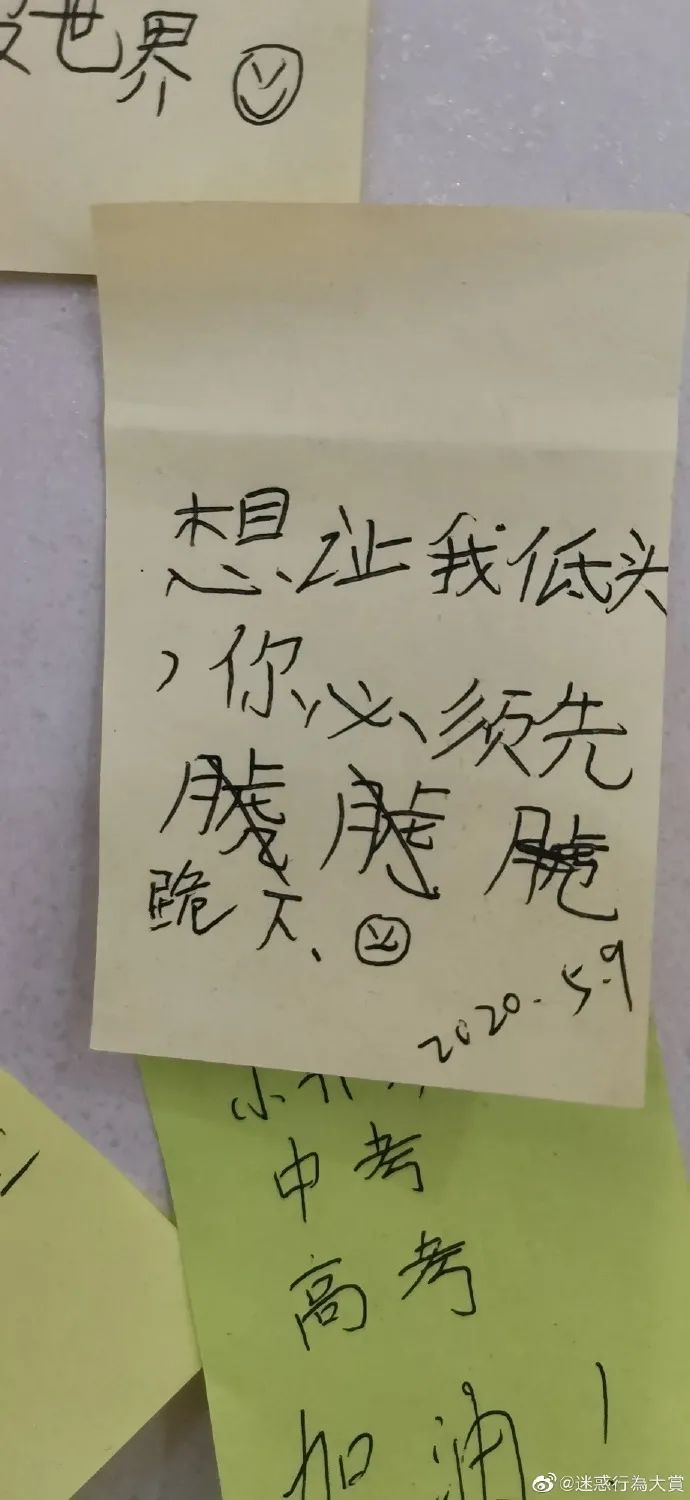 世界
想让我低头
，你必须先
跪下、
2020.5.9
中考
高考
加油！
@迷惑行為大賞